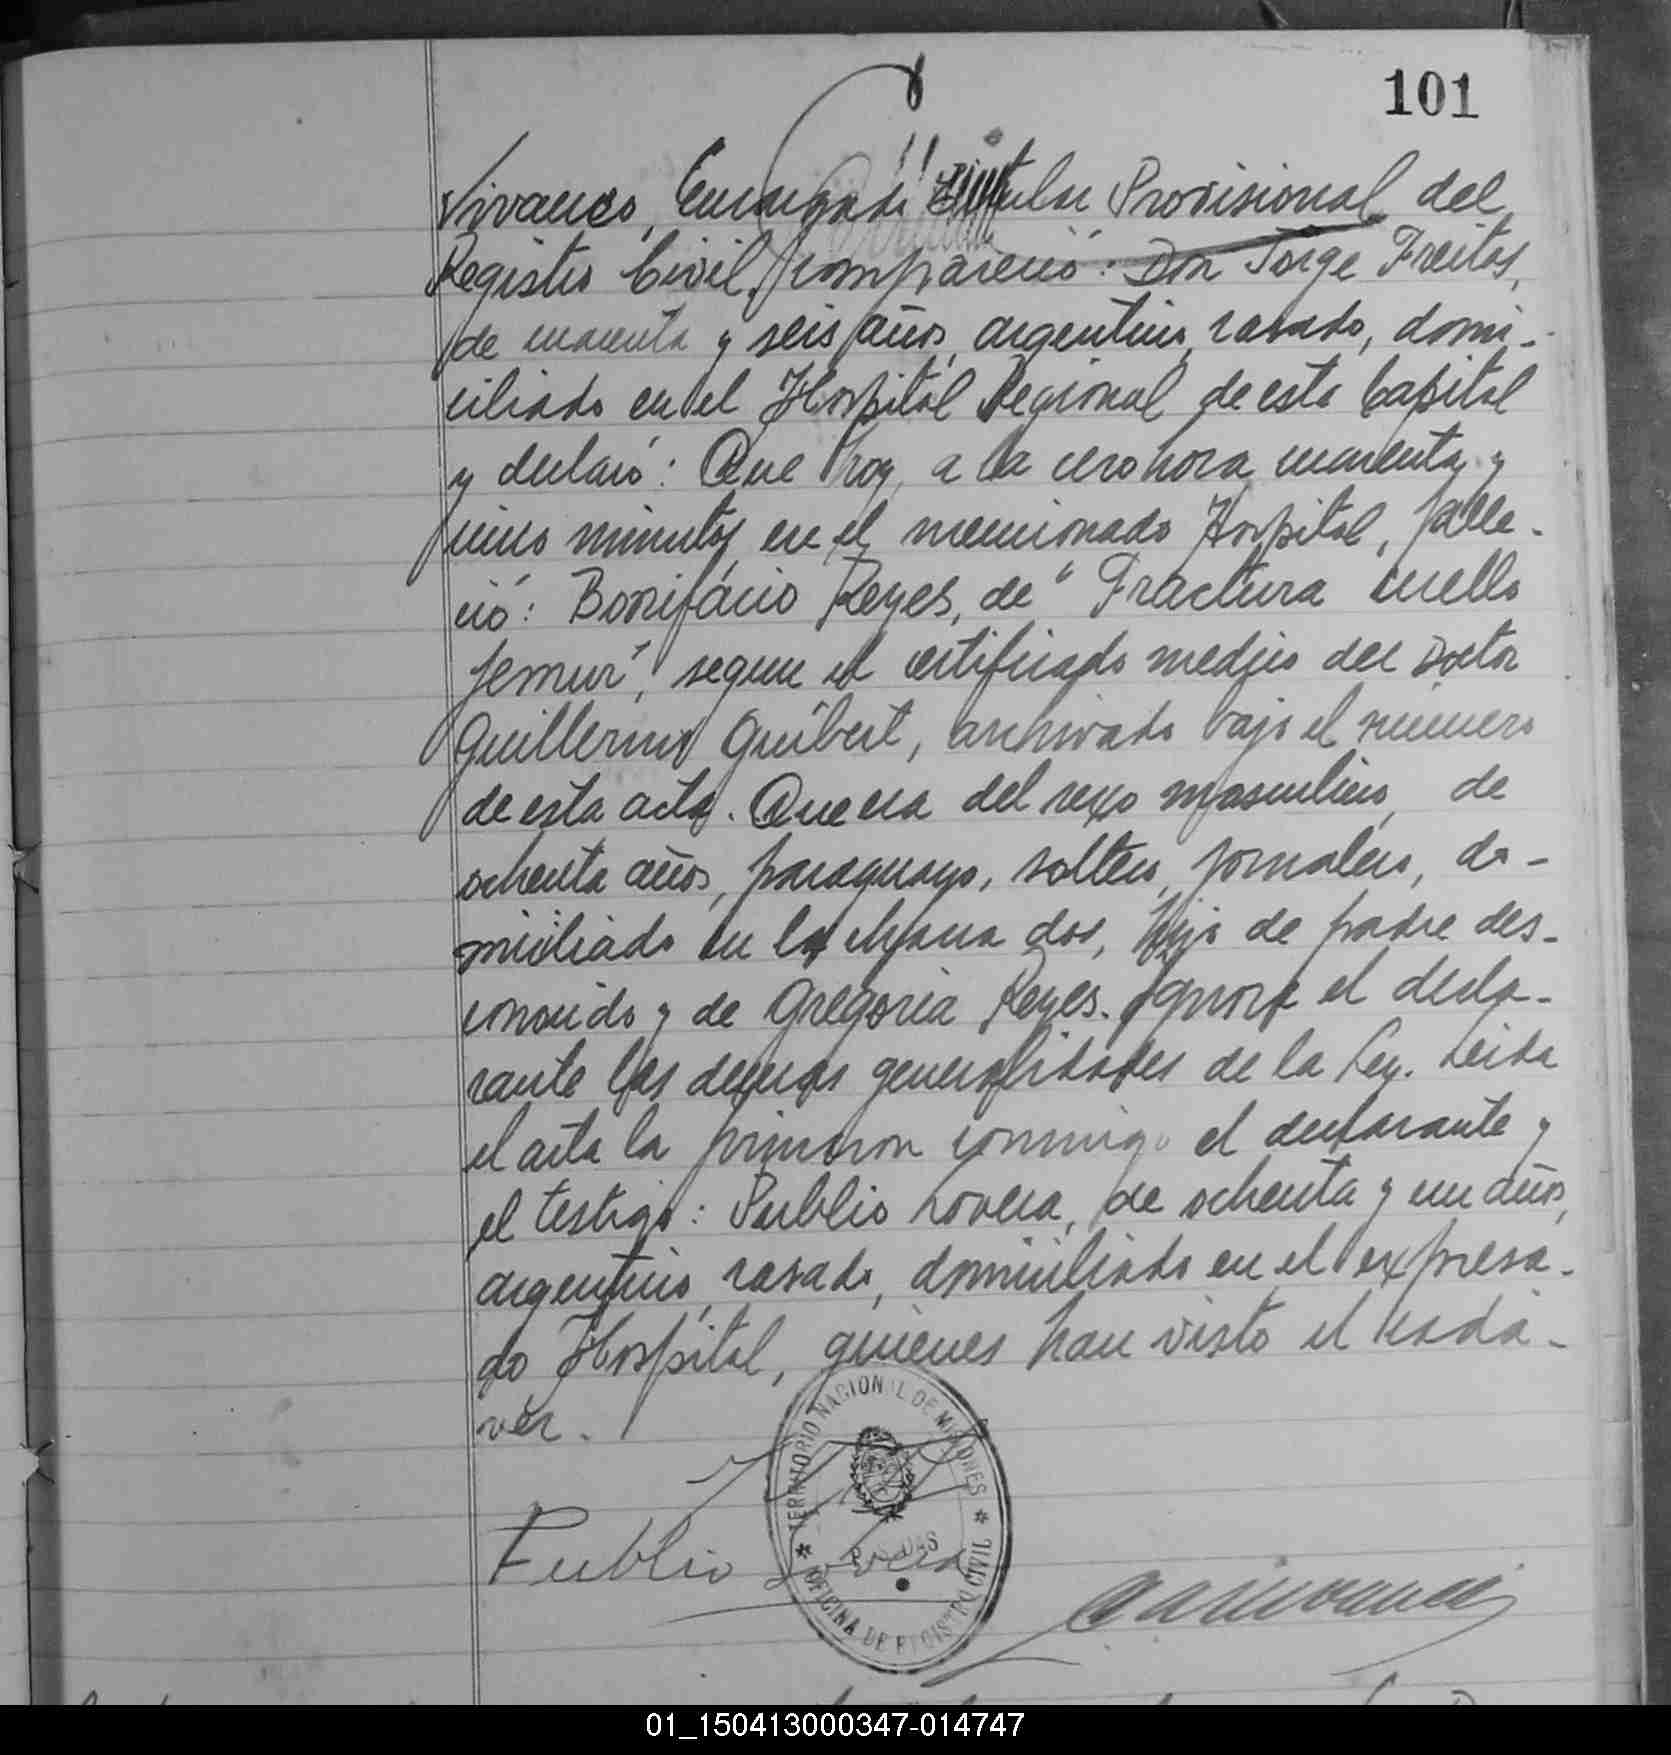 101
Vivanco, Encargado Titular Provisional del
Registro Civil, compareció: Don Jorge Freitas,
de cuarenta y seis años, argentino, casado, domi-
ciliado en el Hospital Regional de esta Capital
y declaró: Que hoy, a la cero hora cuarenta y
cinco minutos, en el mencionado Hospital, falle-
ció: Bonifácio Reyes, de "Fractura cuello
femur", segun el certificado medico del Doctor
Guillermo Guibert, archivado bajo el número
de esta acta. Que era del sexo masculino, de
ochenta años, paraguayo, soltero, jornalero, do-
miciliado en la chacra dos, hijo de padre des-
conocido y de Gregoria Reyes. Ignora el decla-
rante las demas generalidades de la Ley. Leida
el acta la firmaron conmigo el declarante y
el testigo: Publio Lovera, de ochenta y un años,
argentino, casado, domiciliado en el expresa-
do Hospital, quienes han visto el cadá-
ver.
TERRITORIO NACIONAL DE MISIONES
POSADAS
OFICINA DE REGISTRO CIVIL
Publio Lovera
01_150413000347-014747